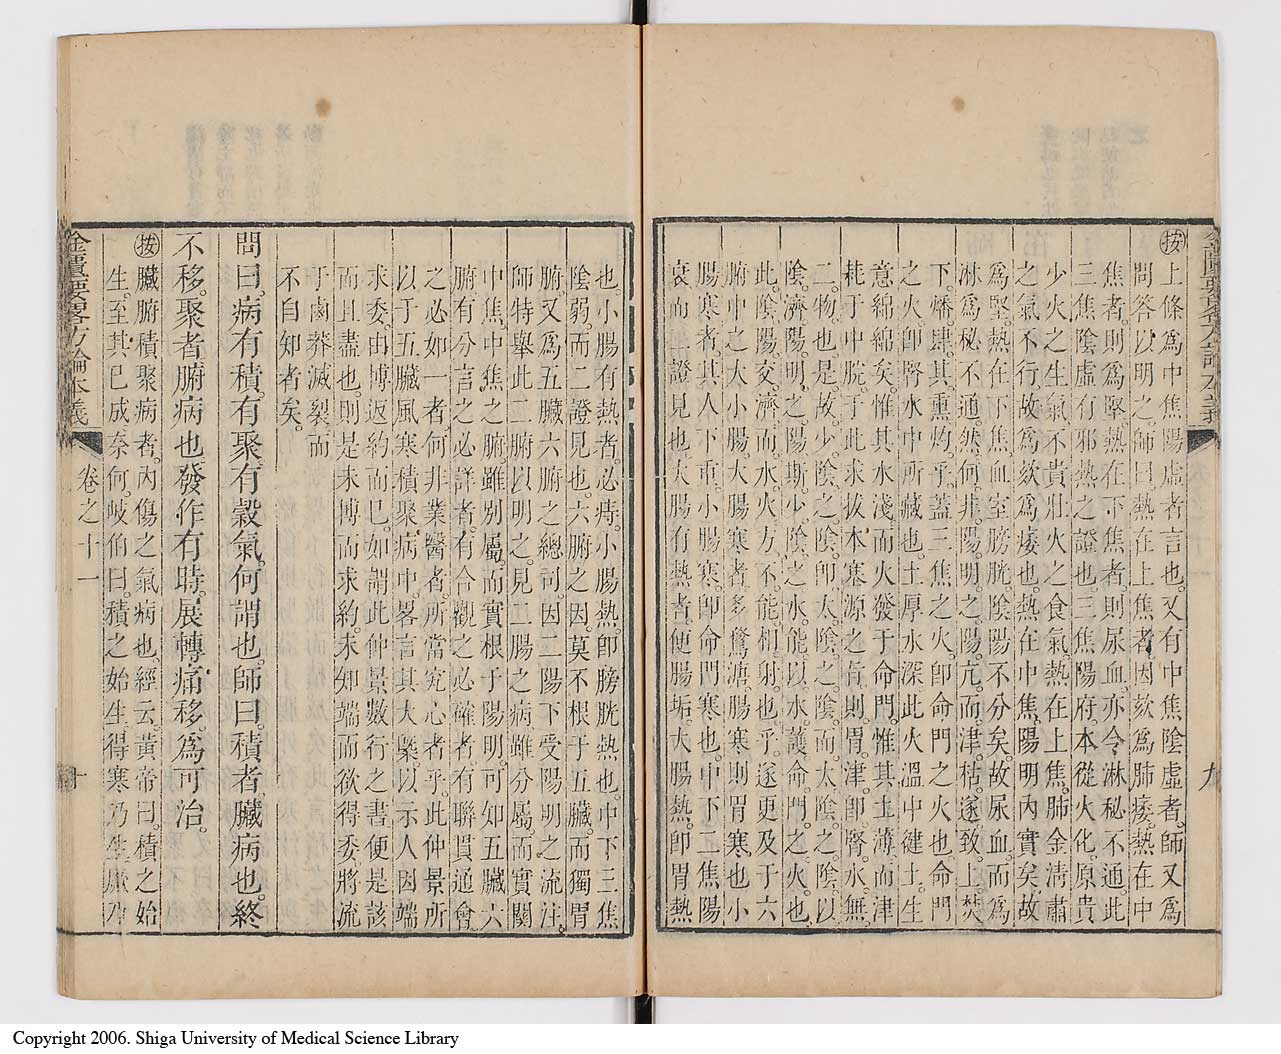 按上條爲中焦陽虛者言也。又有中焦陰虛者。師又爲
問答以明之。師曰。熱在上焦者。因欬爲肺痿。熱在中
焦者。則爲堅。熱在下焦者。則尿血。亦令淋秘不通。此
三焦陰虛有邪熱之證也。三焦陽府。本從火化。原貴
少火之生氣。不貴壯火之食氣。熱在上焦。肺金清肅
之氣不行。故爲欬爲痿也。熱在中焦。陽明內實矣。故
爲堅。熱在下焦。血室膀胱。陰陽不分矣。故尿血。而爲
淋爲秘不通。然何非陽明之陽亢。而津枯。遂致上焚
下燔。肆其熏灼乎。蓋三焦之火。卽命門之火也。命門
之火。卽腎水中所藏也。土厚水深。此火溫中健土。生
意綿綿矣。惟其水淺。而火發于命門。惟其土薄。而津
耗于中脘。于此求拔本塞源之旨。則胃津。卽腎水。無
二物也。是故少陰之陰。卽太陰之陰。而太陰之陰。以
陰濟陽。明之陽斯少陰之水。能以水護命門之火也。
此陰陽交濟。而水火方不能相射也乎。遂更及于六
腑中之大小腸。大腸寒者。多鶩溏。腸寒則胃寒也。小
腸寒者。其人下重。小腸寒。卽命門寒也。中下二焦陽
衰。而二證見也。大腸有熱者。便腸垢。大腸熱。卽胃熱
九
也。小腸有熱者。必痔。小腸熱。卽膀胱熱也。中下三焦
陰弱。而二證見也。六腑之因。莫不根于五臟。而獨胃
腑。又爲五臟六腑之總司。因二陽下受陽明之流注。
師特舉此二腑以明之。見二腸之病。雖分屬。而實關
中焦。中焦之腑雖別屬。而實根于陽明。可知五臟六
腑。有分言之必詳者。有合觀之必確者。有聯貫通會
之必如一者。何非業醫者。所當究心者乎。此仲景所
以于五臟風寒積聚病中。畧言其大槩以示人。因端
求委。由博返約而已。如謂此仲景數行之書。便是該
而且盡也。則是未博而求約。未知端而欲得委。將流
于鹵莽滅裂而
不自知者矣。
問曰。病有積。有聚。有穀氣。何謂也。師曰。積者臟病也。終
不移。聚者腑病也。發作有時。展轉痛移。爲可治。
按臟腑積聚病者。內傷之氣病也。經云。黃帝曰。積之始
生。至其已成奈何。岐伯曰。積之始生。得寒乃生。厥乃
金匱要畧方論本義
卷之十一
十
Copyright 2006. Shiga University of Medical Science Library